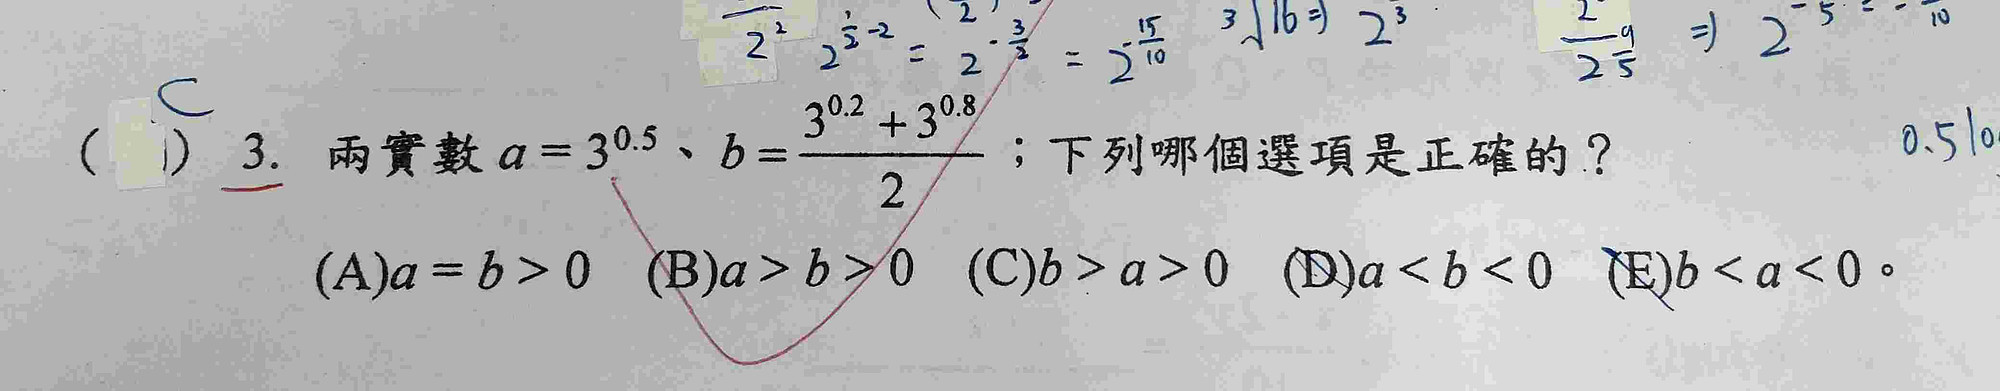 2^2 2^{\frac{1}{2}-2} = 2^{-\frac{3}{2}} = 2^{-\frac{15}{10}} ∛16 ⇒ 2^3 \frac{2}{2^{\frac{9}{5}}} ⇒ 2^{-5}
C
( ) 3. 兩實數 a = 3^{0.5}、b = \frac{3^{0.2} + 3^{0.8}}{2};下列哪個選項是正確的? 0.5 lo
(A)a = b > 0 (B)a > b > 0 (C)b > a > 0 (D)a < b < 0 (E)b < a < 0。